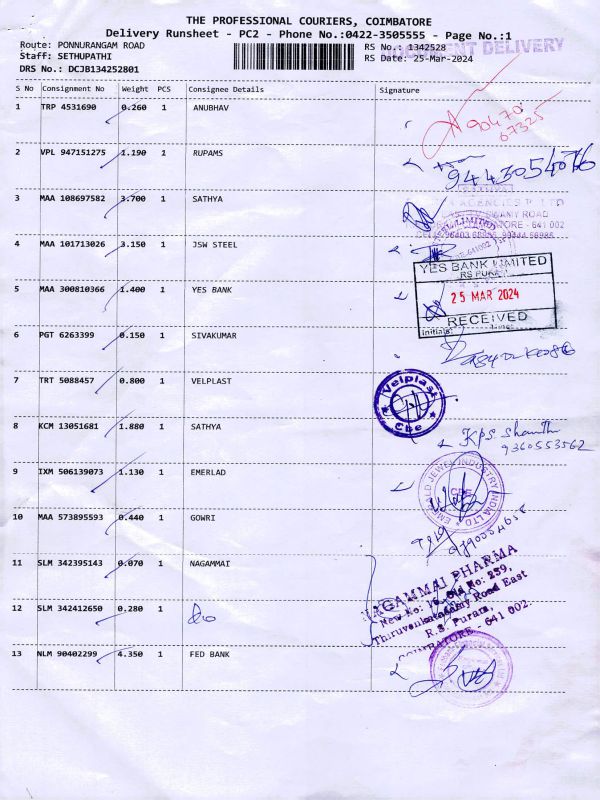 THE PROFESSIONAL COURIERS, COIMBATORE
Delivery Runsheet - PC2 - Phone No.:0422-3505555 - Page No.:1
Route: PONNURANGAM ROAD
RS No.: 1342528
DELIVERY
Staff: SETHUPATHI
RS Date: 25-Mar-2024
DRS No.: DCJB134252801
S No Consignment No Weight PCS Consignee Details Signature
1 TRP 4531690 0.260 1 ANUBHAV
90470
67325
2 VPL 947151275 1.190 1 RUPAMS
3 MAA 108697582 3.700 1 SATHYA
AGENCIES P LTD
SWAMY ROAD
641 002
4 MAA 101713026 3.150 1 JSW STEEL
YES BANK LIMITED
5 MAA 300810366 1.400 1 YES BANK
25 MAR 2024
RECEIVED
Initials:
6 PGT 6263399 0.150 1 SIVAKUMAR
7 TRT 5088457 0.800 1 VELPLAST
Velplast
Cbe
8 KCM 13051681 1.880 1 SATHYA
KPS. Shanthi
9360553562
9 IXM 506139073 1.130 1 EMERLAD
EMERALD JEWEL INDUSTRY INDIA LTD
CBE
10 MAA 573895593 0.440 1 GOWRI
11 SLM 342395143 0.070 1 NAGAMMAI
NAGAMMAI PHARMA
New No: 16, Old No: 239,
Thiruvenkatasamy Road East
R.S. Puram,
COIMBATORE - 641 002.
12 SLM 342412650 0.280 1 Do
13 NLM 90402299 4.350 1 FED BANK